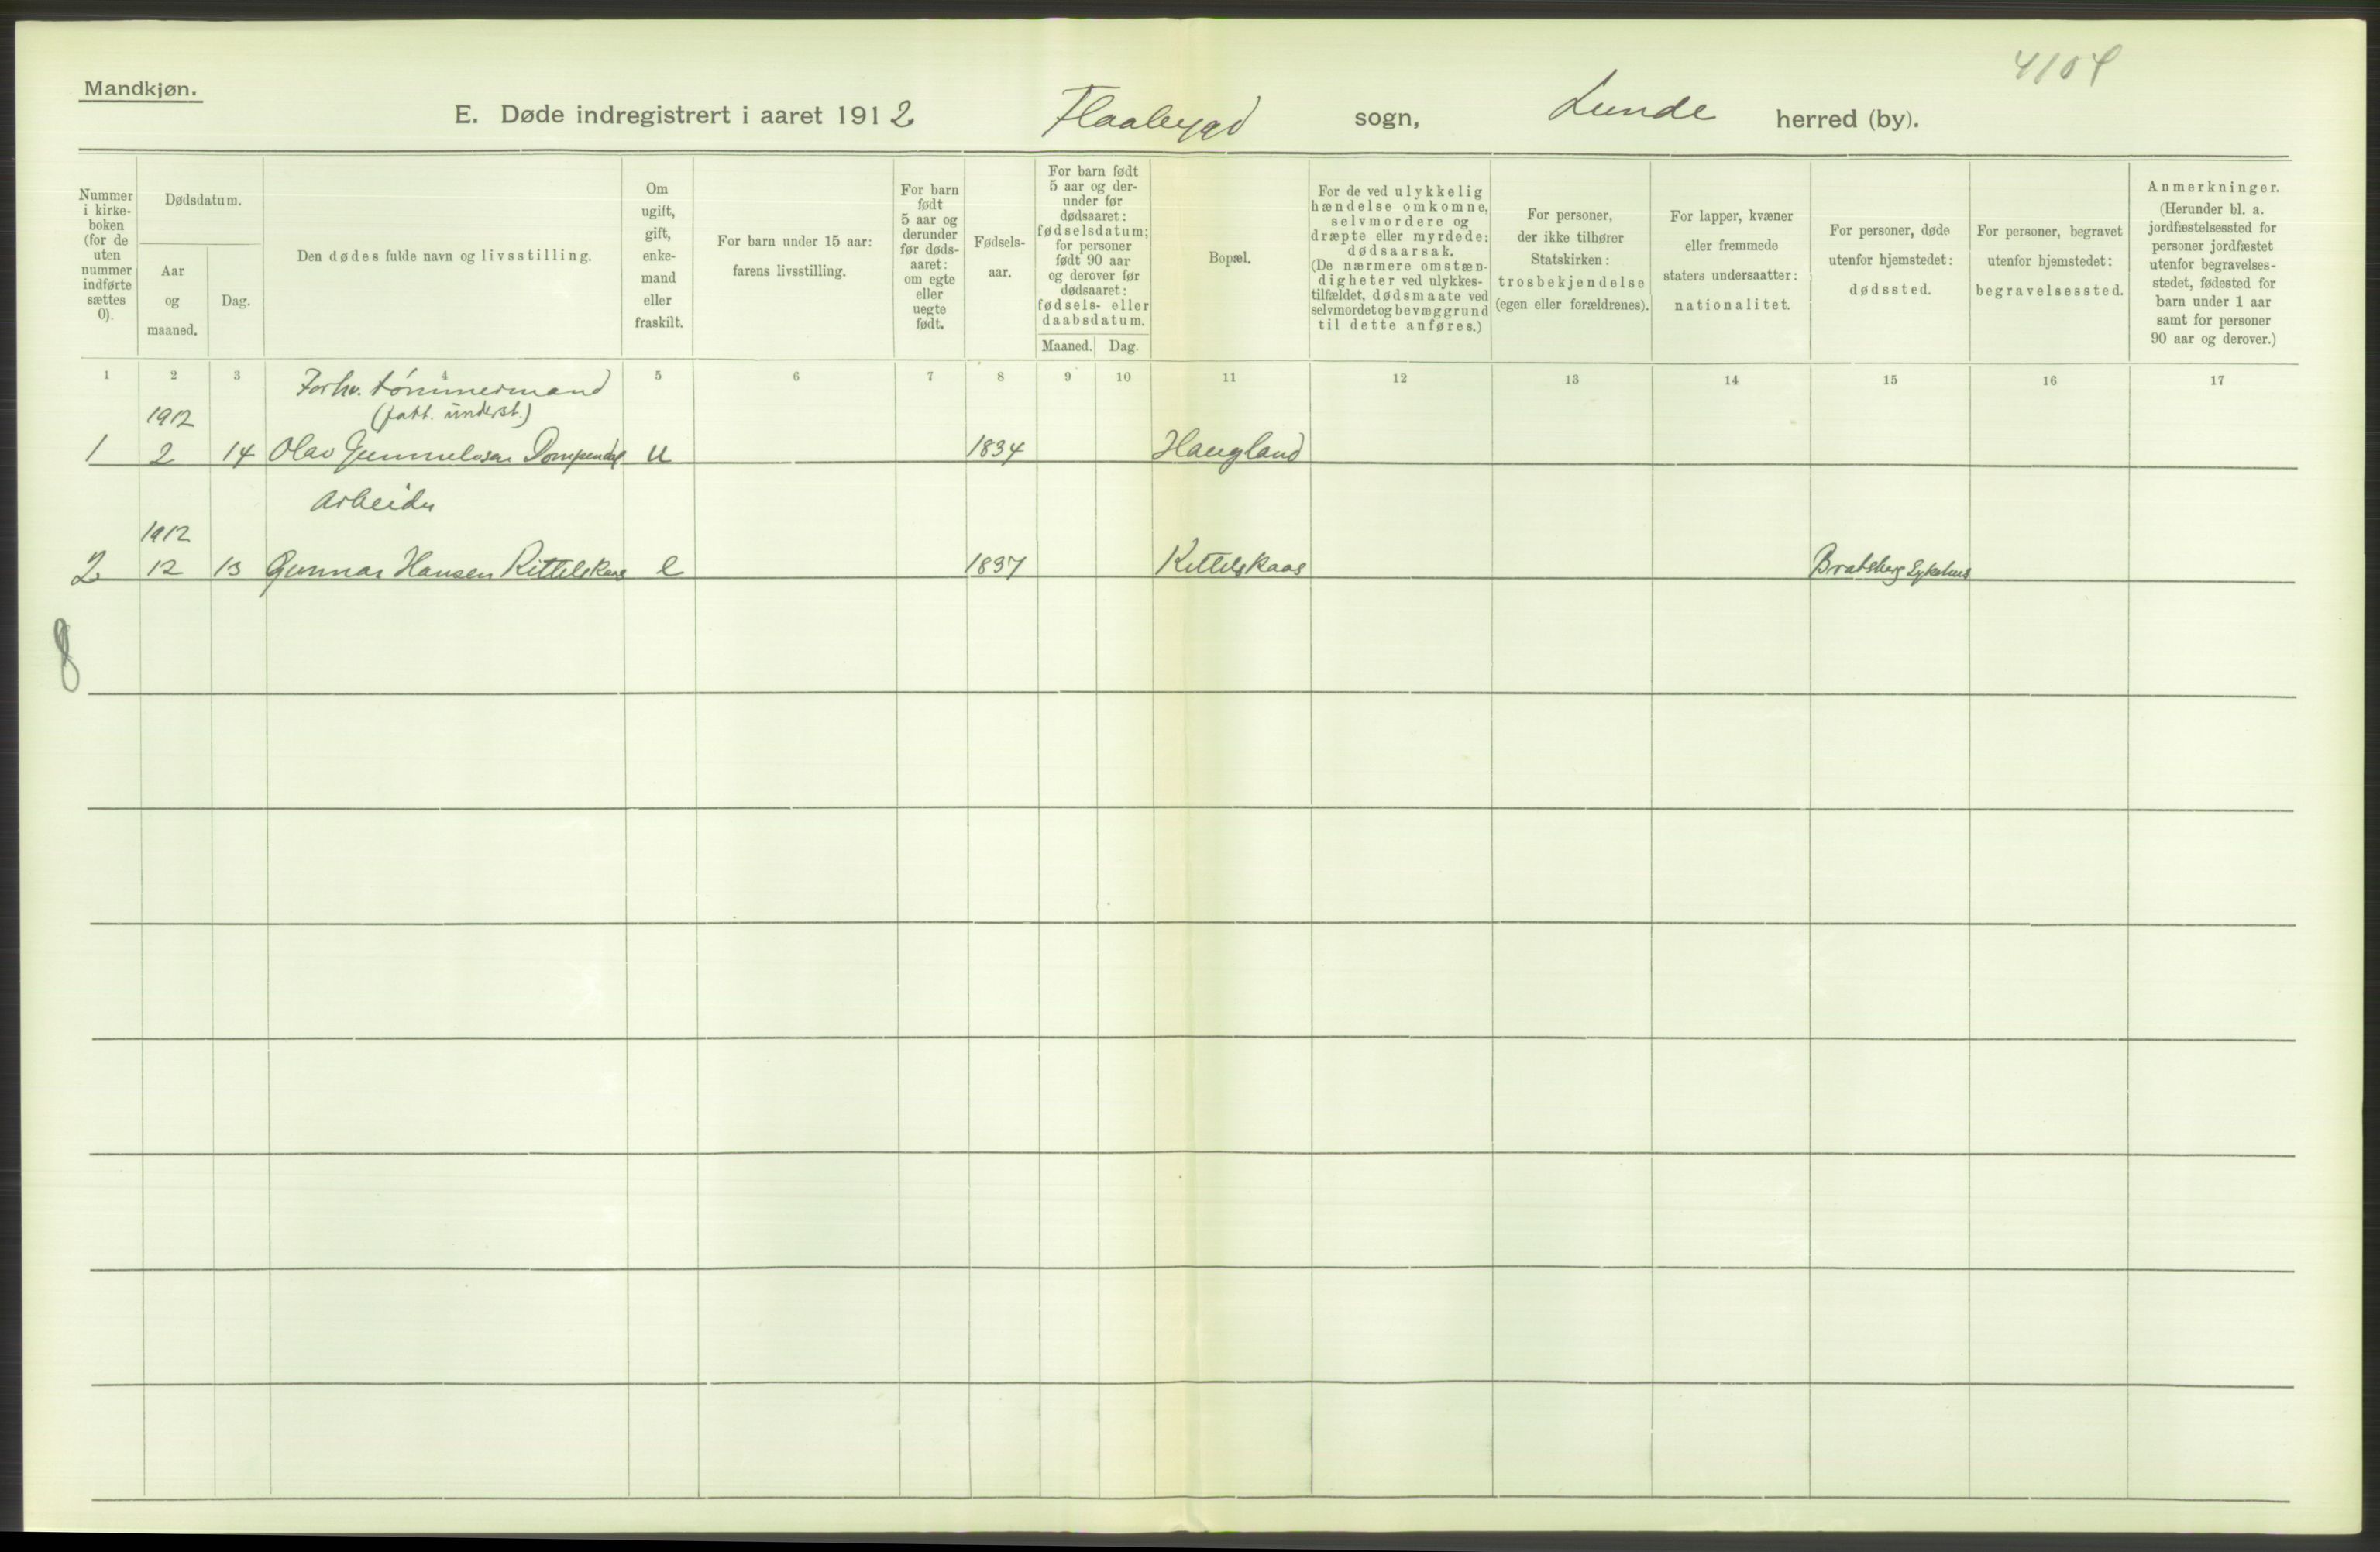 4104
Mandkjøn.
E. Døde indregistrert i aaret 1912 Flaabygd sogn, Lunde herred (by).
Nummer i kirke-boken (for de uten nummer indførte sættes 0).
Dødsdatum.
Aar og maaned.
Dag.
Den dødes fulde navn og livsstilling.
Om ugift, gift, enke-mand eller fraskilt.
For barn under 15 aar: farens livsstilling.
For barn født 5 aar og derunder før døds-aaret: om egte eller uegte født.
Fødsels-aar.
For barn født 5 aar og der-under før dødsaaret: fødselsdatum; for personer født 90 aar og derover før dødsaaret: fødsels- eller daabsdatum.
Maaned. Dag.
Bopæl.
For de ved ulykkelig hændelse omkomne, selvmordere og dræpte eller myrdede: dødsaarsak. (De nærmere omstæn-digheter ved ulykkes-tilfældet, dødsmaate ved selvmordet og bevæggrund til dette anføres.)
For personer, der ikke tilhører Statskirken: trosbekjendelse (egen eller forældrenes).
For lapper, kvæner eller fremmede staters undersaatter: nationalitet.
For personer, døde utenfor hjemstedet: dødssted.
For personer, begravet utenfor hjemstedet: begravelsessted.
Anmerkninger. (Herunder bl. a. jordfæstelsessted for personer jordfæstet utenfor begravelses-stedet, fødested for barn under 1 aar samt for personer 90 aar og derover.)
1 2 3 4 5 6 7 8 9 10 11 12 13 14 15 16 17
Forhv. tømmermand
(fatt. underst.)
1912
1 2 14 Olav Gunnulvsen u 1834 Haugland
Arbeider
1912
2 12 13 Gunnar Hansen Kittelskaas e 1837 Kittelskaas Bratsberg Sykehus
8